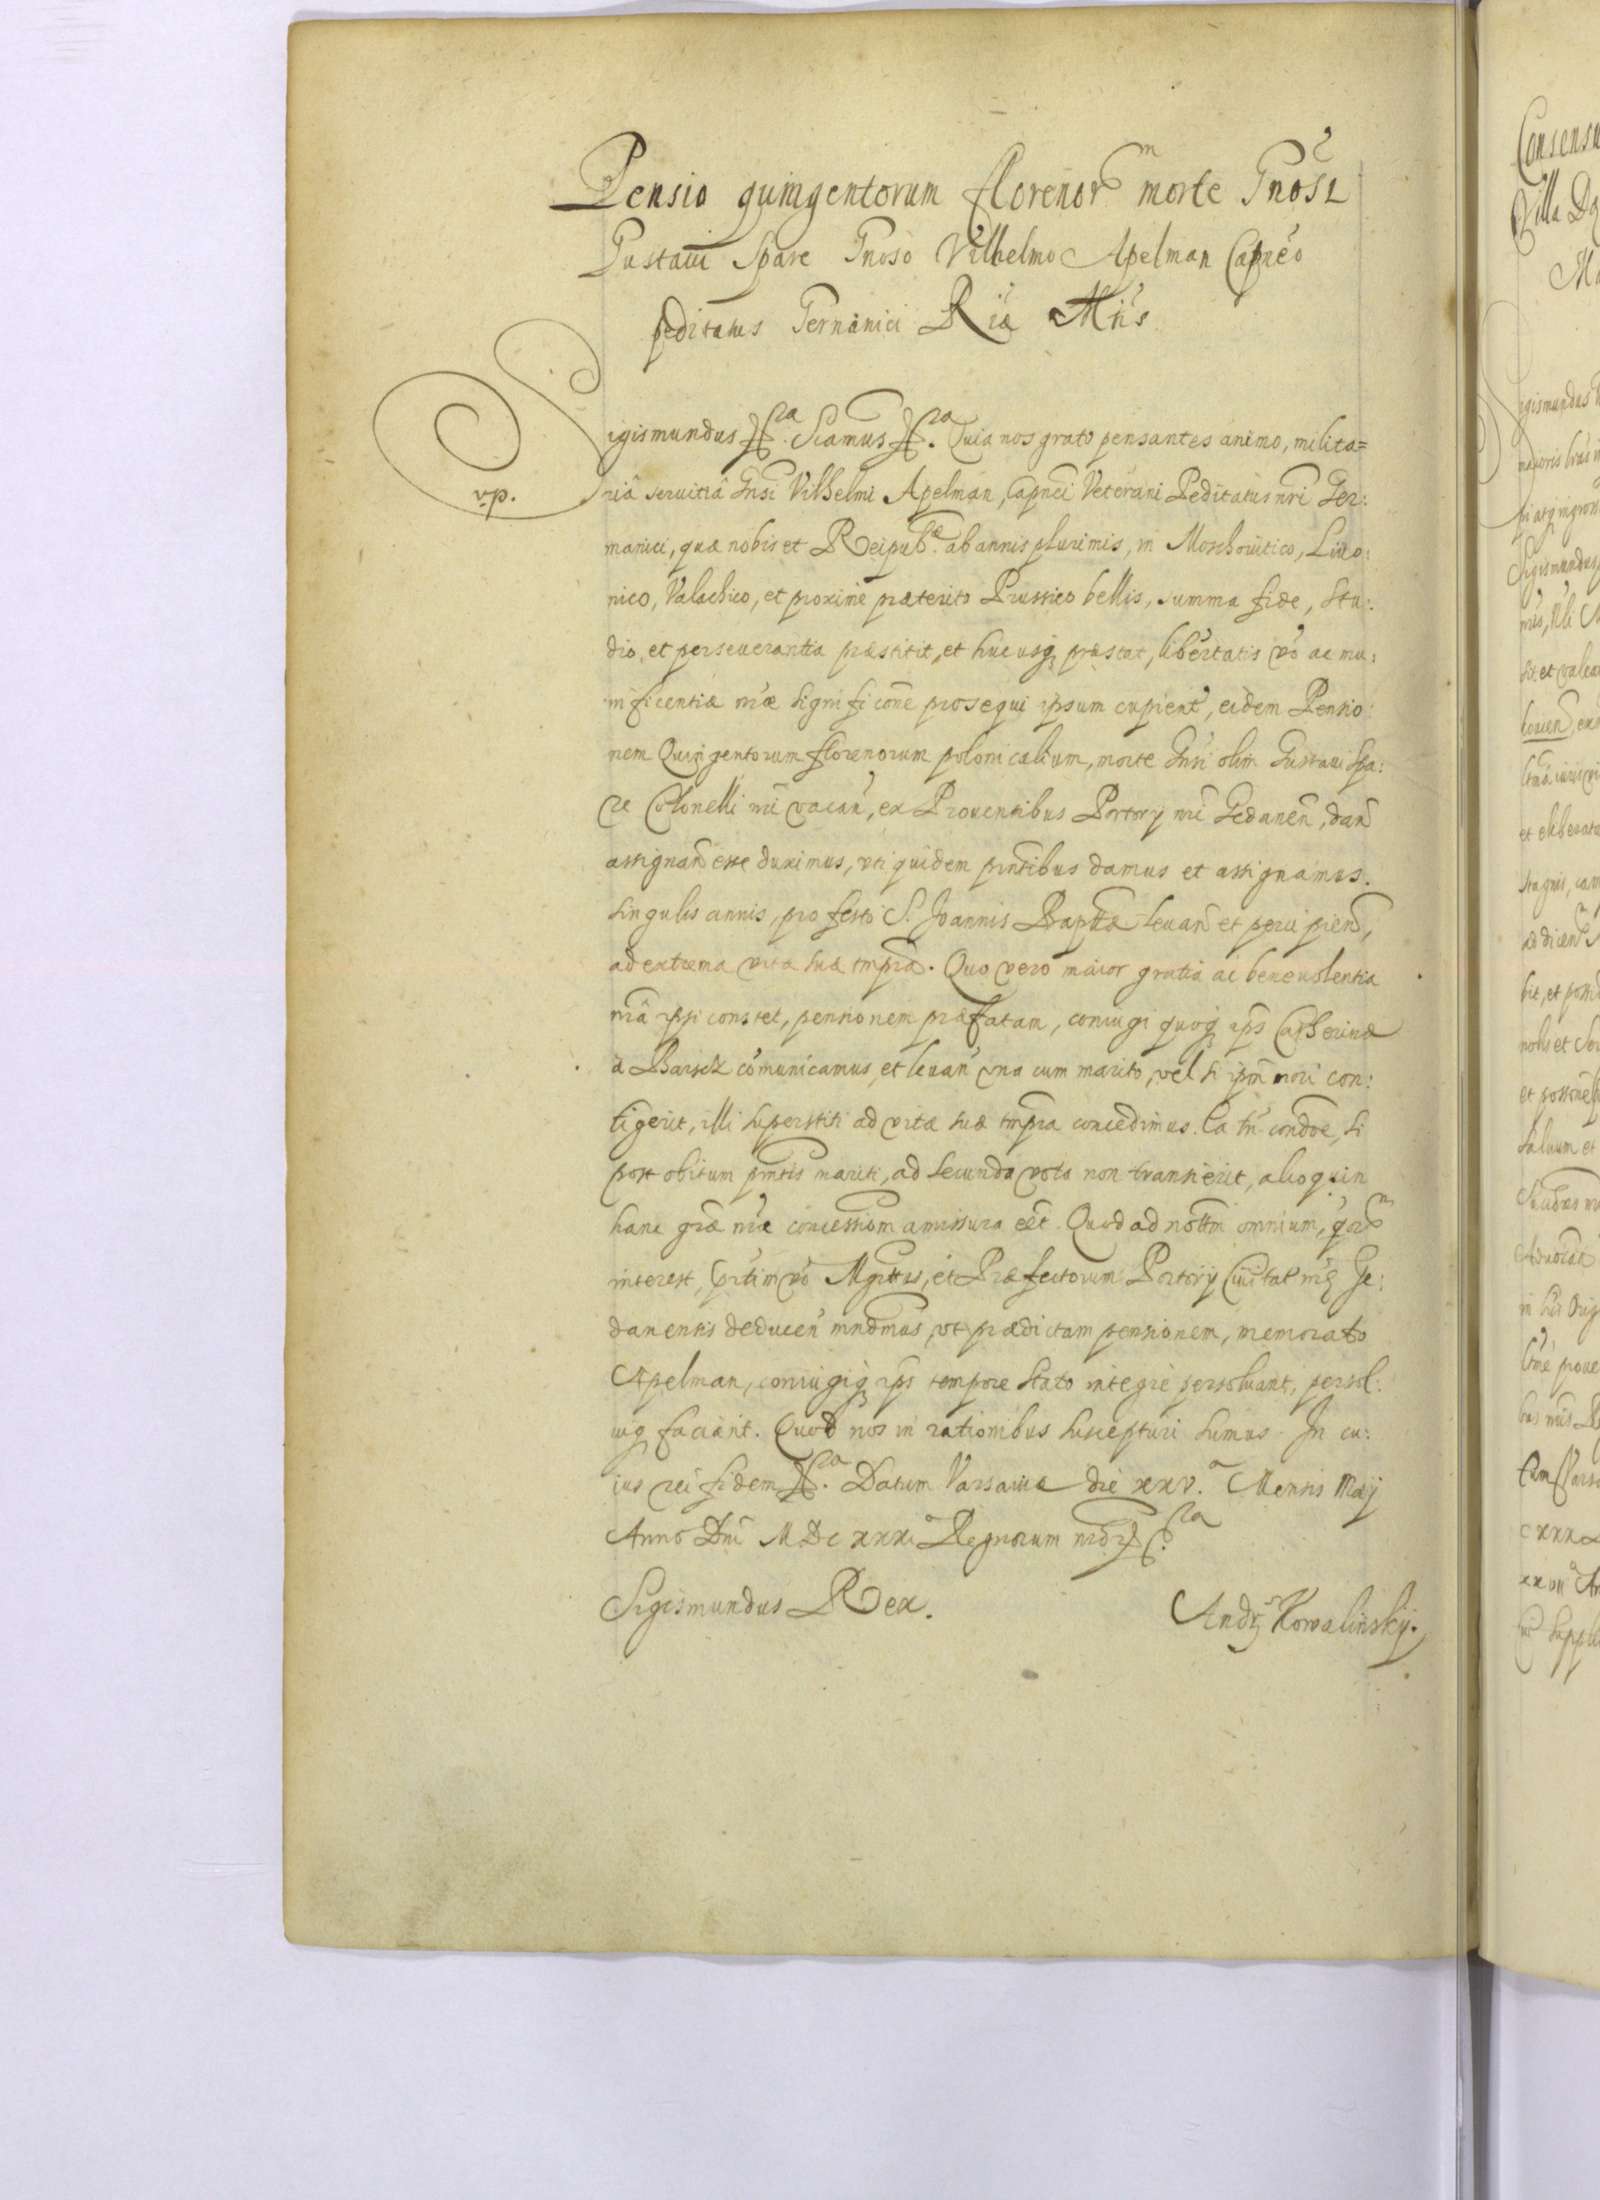 Pensio quingentorum florenor͂m morte Gnosi
Gustavi Spare Gnoso Vilhelmo Apelman Capneo
peditatus Germanici Riæ Mtis
Sigismundus &ra. Sciamus &ra. Quia nos grato pensantes animo, milita=
riâ servitiâ Gnsi Vilhelmi Apelman, Capnei Veterani Peditatus nri Ger:
vp.
manici, quæ nobis et Reipubcæ. ab annis plurimis, in Moschovitico, Livo:
nico, Valachico, et proxime præterito Prussico bellis, summa fide, stu:
dio, et perseverantia præstitit, et hucusq præstat, libertatis vo ac mu:
nificentiæ nræ significone prosequi ipsum cupient, eidem Pensio:
nem Quingentorum florenorum polonicalium, morte Gnsi olim Gustavi Spa:
re Colonelli nri vacan, ex Proventibus Portorij nri Gedanen, dan
assignan esse duximus, uti quidem pntibus damus et assignamus.
singulis annis, pro festo S. Joannis Baptæ levan et percipien,
ad extrema vitæ suæ tmpra. Quo vero maior gratia ac benevolentia
nra ipsi constet, pensionem præfatam, coniugi quoq ips Catherinæ
a Barsck comunicamus, et levan una cum marito, vel si ipm mori con:
tigerit, illi superstiti ad vitæ suæ tmpra concedimus. Ea tn condoe, si
post obitum pntis mariti, ad secunda vota non transierit, alioquin
hanc græ nræ concessiom amissura eet. Quod ad nottm omnium, qorm
interest, sprtim vo Mgrttis, et Præfectorum Portorij Civitat nræ Ge:
danensis deducen mndmus, ut prædictam pensionem, memorato
Apelman, coniugiq ips tempore stato integrè persolvant, persol:
viq faciant. Quod nos in rationibus suscepturi sumus. In cu:
ius rei fidem &ra. Datum Varsaviæ die xxv.a Mensis Maij
Anno Dni MDcxxxi Regnorum nror &ra.
Sigismundus Rex.
Andr Kowalinskij.